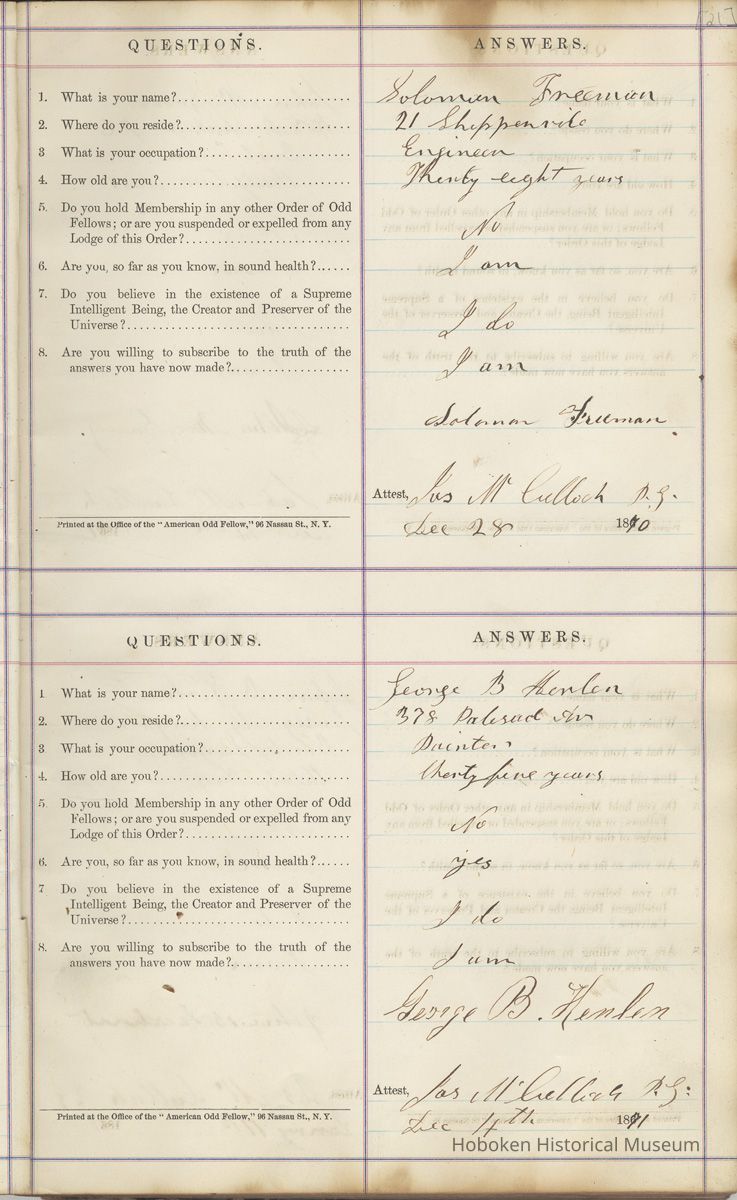 [21]
QUESTIONS.
ANSWERS.
1. What is your name?
Solomon Freeman
2. Where do you reside?
21
3 What is your occupation?
Engineer
4. How old are you?
Thirty eight years
5. Do you hold Membership in any other Order of Odd
Fellows; or are you suspended or expelled from any
Lodge of this Order?
No
6. Are you, so far as you know, in sound health?
I am
7. Do you believe in the existence of a Supreme
Intelligent Being, the Creator and Preserver of the
Universe?
I do
8. Are you willing to subscribe to the truth of the
answers you have now made?
I am
Solomon Freeman
Attest, Jas McCulloch N. G.
Printed at the Office of the "American Odd Fellow," 96 Nassau St., N. Y.
Dec 28 1870
QUESTIONS.
ANSWERS.
1 What is your name?
George B Henlen
2. Where do you reside?
378 Palisad Av
3 What is your occupation?
Painter
4. How old are you?
thirty five years
5 Do you hold Membership in any other Order of Odd
Fellows; or are you suspended or expelled from any
Lodge of this Order?
No
6. Are you, so far as you know, in sound health?
yes
7 Do you believe in the existence of a Supreme
Intelligent Being, the Creator and Preserver of the
Universe?
I do
8. Are you willing to subscribe to the truth of the
answers you have now made?
I am
George B. Henlen
Attest, Jas McCulloch N. G.
Printed at the Office of the "American Odd Fellow," 96 Nassau St., N. Y.
Dec 4th 1871
Hoboken Historical Museum